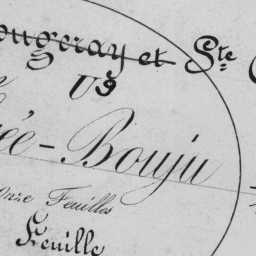 ougeray et Ste
ée-Bouju
Onze Feuilles
Feuille